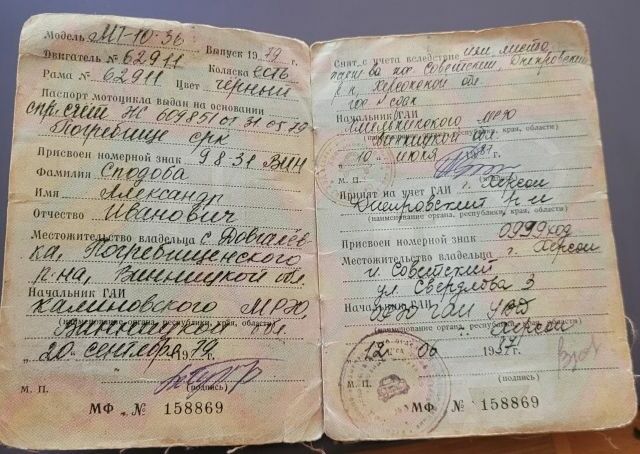 Модель МТ-10-36 Выпуск 1979 г.
Двигатель № 62911
Рама № 62911 Коляска есть
Цвет чёрный
Паспорт мотоцикла выдан на основании
спр. счёт ЖК 609851 от 31.05.79
Погребище срк
Присвоен номерной знак 9831 ВИН
Фамилия Сподова
Имя Александр
Отчество Иванович
Местожительство владельца с. Довгалёв-
ка, Погребищенского
р-на, Винницкой обл.
Начальник ГАИ
Калиновского МРЭО,
(наименование органа, республики, края, области)
„20" сентября 1979 г.
М. П. (подпись)
МФ № 158869
Снят с учета вследствие изм. места
пос. Советский, Днепровский
р-н, Херсонской обл.
Начальник ГАИ
Хмельникского МРЭО
Винницкой обл.
(наименование органа, республики, края, области)
„10" июня 1987 г.
М. П. (подпись)
Принят на учет ГАИ г. Херсон
Днепровский р-н
(наименование органа, республики, края, области)
Присвоен номерной знак 0999
Местожительство владельца г. Херсон
п. Советский
ул. Свердлова 3
Начальник ГАИ
ГАИ УВД
(наименование органа, республики, края, области)
г. Херсон
06 1987 г.
М. П. (подпись)
МФ № 158869